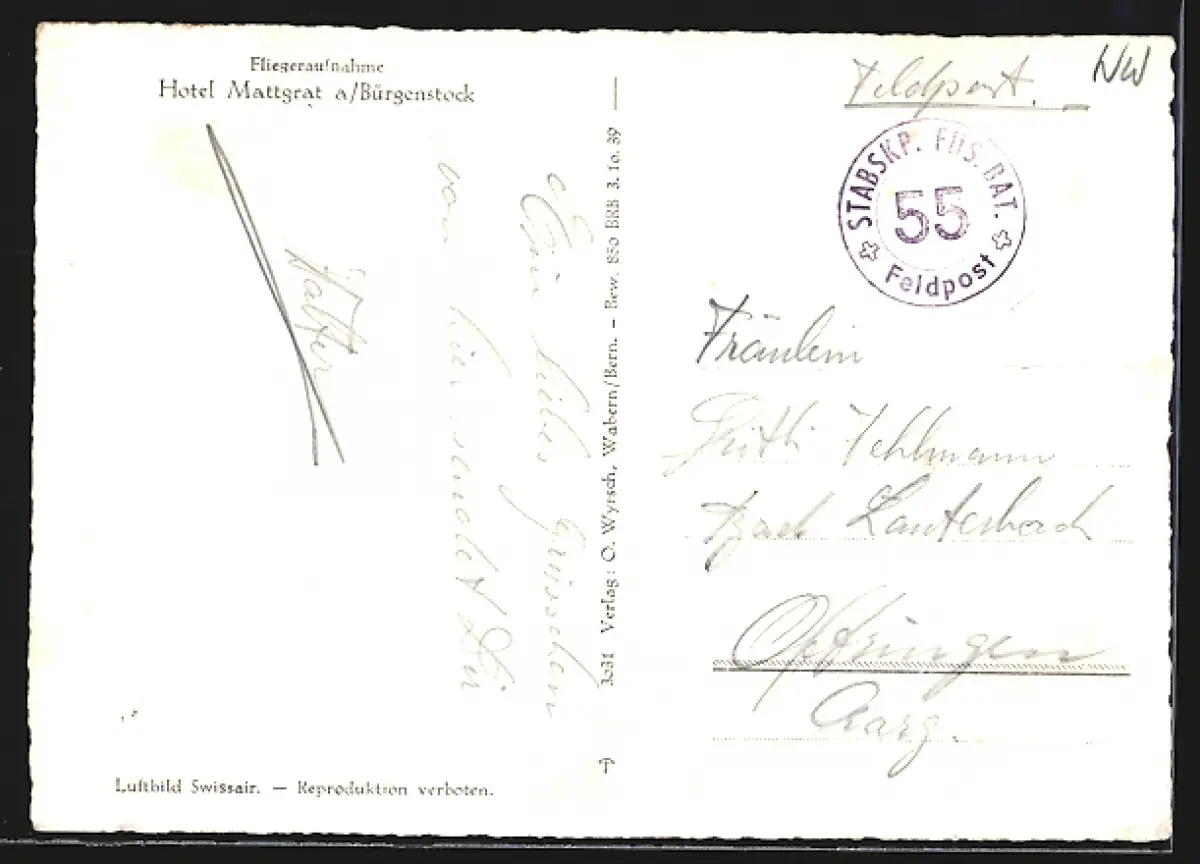 Fliegeraufnahme
Hotel Mattgrat a/Bürgenstock
Ein liebes Grüsschen
von hier sendet Dir
Walter
Luftbild Swissair. — Reproduktion verboten.
3c31 Verlag: O. Wyrsch, Wabern/Bern. - Bew. 850 BRB 3. 10. 39
Feldpost.
NW
STABSKP. FÜS. BAT.
55
Feldpost
Fräulein
Gritli
Lauterbach
Oftringen
Aarg.